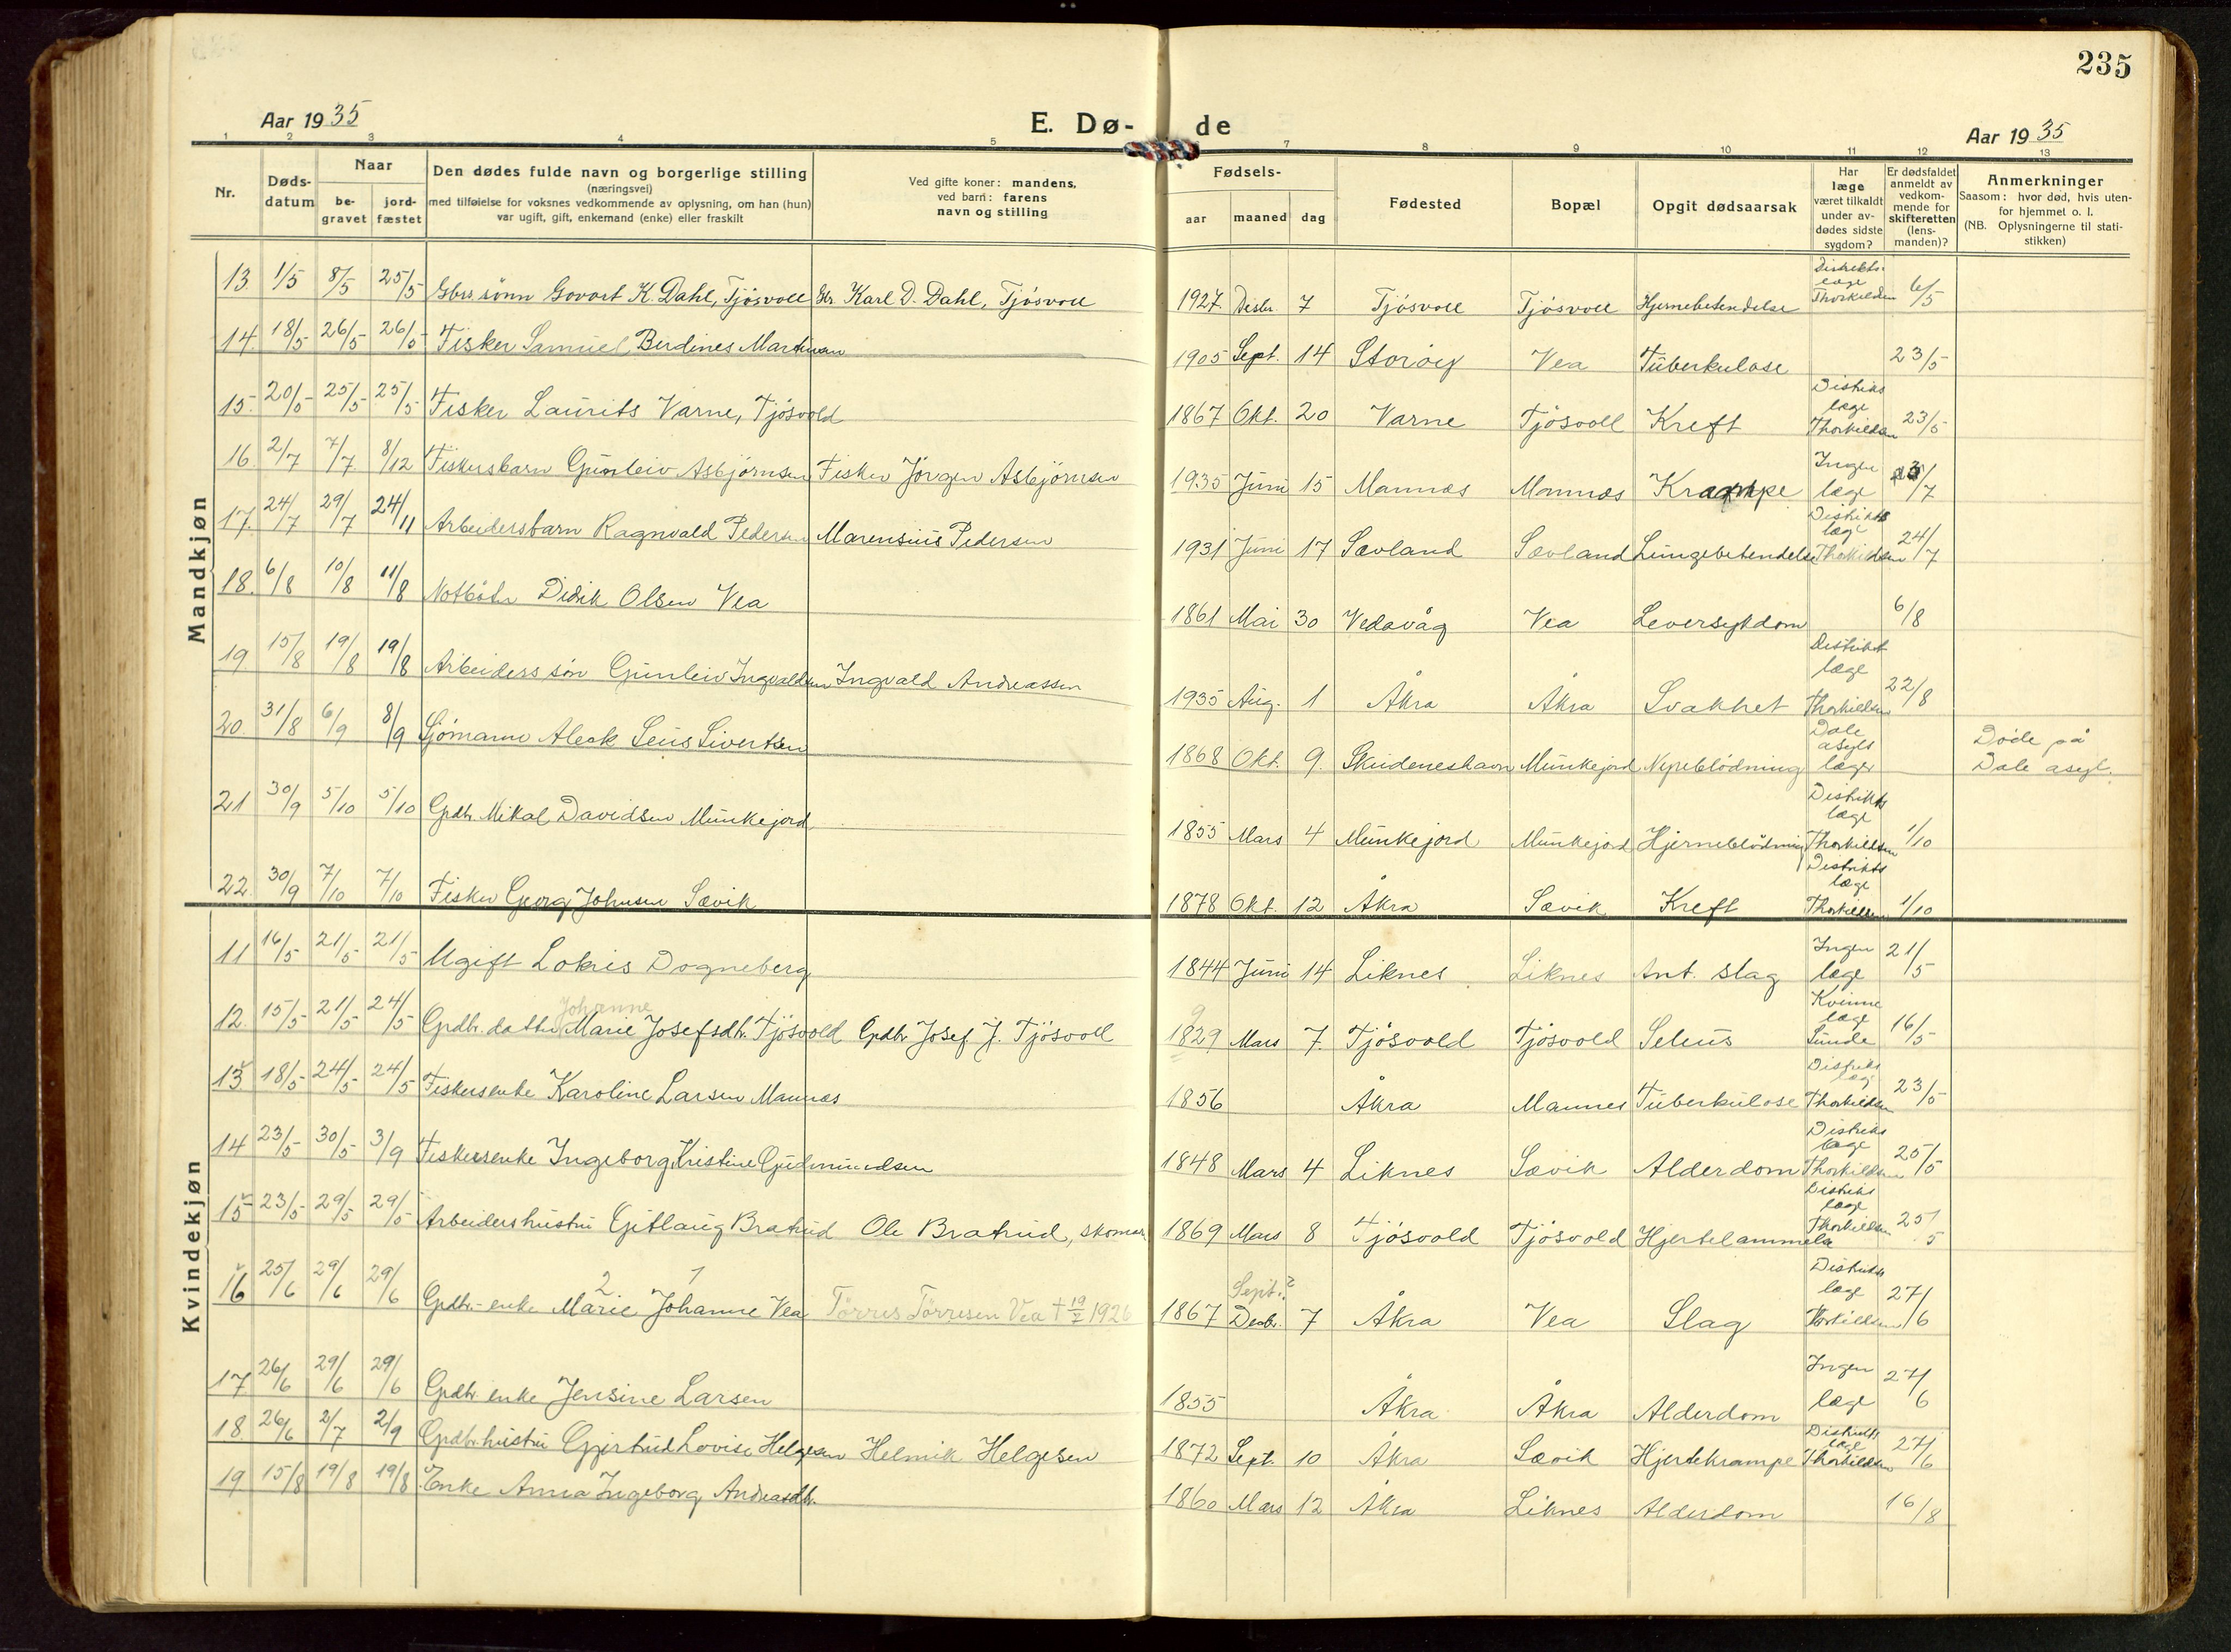 235
Aar 1935
E. Dø- de
Aar 1935
1 2 3 4 5 7 8 9 10 11 12 13
Nr.
Døds-
datum
Naar
be-
gravet
jord-
fæstet
Den dødes fulde navn og borgerlige stilling
(næringsvei)
med tilføielse for voksnes vedkommende av oplysning, om han (hun)
var ugift, gift, enkemand (enke) eller fraskilt
Ved gifte koner: mandens,
ved barn: farens
navn og stilling
Fødsels-
aar maaned dag
Fødested
Bopæl
Opgit dødsaarsak
Har
læge
været tilkaldt
under av-
dødes sidste
sygdom?
Er dødsfaldet
anmeldt av
vedkom-
mende for
skifteretten
(lens-
manden)?
Anmerkninger
Saasom: hvor død, hvis uten-
for hjemmet o. l.
(NB. Oplysningerne til stati-
stikken)
Mandkjøn
13 1/5 8/5 25/5 Gbrs. sønn Govart K. Dahl, Tjøsvoll Gbr. Karl D. Dahl, Tjøsvoll 1927 Desbr. 7 Tjøsvoll Tjøsvoll Hjernebetendelse Distrikts læge Thorkildsen 6/5
14 18/5 26/5 26/5 Fisker Samuel Berdines Martinsen 1905 Sept. 14 Storøy Vea Tuberkulose 23/5
15 20/5 25/5 25/5 Fisker Laurits Varne, Tjøsvold 1867 Okt. 20 Varne Tjøsvoll Kreft Distriks læge Thorkildsen 23/5
16 2/7 7/7 8/12 Fiskersbarn Gunleiv Asbjørnsen Fisker Jørgen Asbjørnsen 1935 Juni 15 Mannes Mannes Krampe Ingen læge 3/7
17 24/7 29/7 24/11 Arbeidersbarn Ragnvald Pedersen Marensius Pedersen 1931 Juni 17 Sævland Sævland Lungebetendelse Distrikts læge Thorkildsen 24/7
18 6/8 10/8 11/8 Notbøter Didrik Olsen Vea 1861 Mai 30 Vedavåg Vea Leversykdom 6/8
19 15/8 19/8 19/8 Arbeiders søn Gunleiv Ingvaldsen Ingvald Andreassen 1935 Aug. 1 Åkra Åkra Svakhet Distrikt læge Thorkildsen 22/8
20 31/8 6/9 8/9 Sjømann Aleck Seus Sivertsen 1868 Okt. 9. Skudeneshavn Munkejord Nyreblødning Dale asyls læger Døde på Dale asyl.
21 30/9 5/10 5/10 Grdbr. Mikal Davidsen Munkejord 1855 Mars 4 Munkejord Munkejord Hjerneblødning Distrikts læge Thorkildsen 1/10
22 30/9 7/10 7/10 Fisker Georg Johnsen Sævik 1878 Okt. 12 Åkra Sævik Kreft Distrikts læge Thorkildsen 1/10
Kvindekjøn
11 16/5 21/5 21/5 Ugift Lokris Dogneberg 1844 Juni 14 Liknes Liknes Ant. slag Ingen læge 21/5
Johanne 9
12 15/5 21/5 24/5 Grdbr. datter Marie Josefsdtr. Tjøsvold Grdbr Josef J. Tjøsvoll 1829 Mars 7. Tjøsvold Tjøsvold Selius Kvinne læge Sunde 16/5
13 18/5 24/5 24/5 Fiskersenke Karoline Larsen Mannes 1856 Åkra Mannes Tuberkulose Distriks læge Thorkildsen 23/5
14 23/5 30/5 3/9 Fiskersenke Ingeborg Kristine Gudmundsen 1848 Mars 4 Liknes Sævik Alderdom Distriks læge Thorkildsen 25/5
15 23/5 29/5 29/5 Arbeidershustru Gitlaug Bratrud Ole Bratrud, skomaker 1869 Mars 8 Tjøsvold Tjøsvold Hjertelammelse Distriks læge Thorkildsen 25/5
2 1 Sept.?
16 25/6 29/6 29/6 Grdbr.-enke Marie Johanne Vea Tørres Tørresen Vea † 19/X 1926 1867 Desbr. 7 Åkra Vea Slag Distrikts læge Thorkildsen 27/6
17 26/6 29/6 29/6 Grdbr. enke Jensine Larsen 1855 Åkra Åkra Alderdom Ingen læge 27/6
18 26/6 2/7 2/9 Grdbr.hustru Gjertrud Lovise Helgesen Helmik Helgesen 1872 Sept. 10 Åkra Sævik Hjertekrampe Distrikts læge Thorkildsen 27/6
19 15/8 19/8 19/8 Enke Anna Ingeborg Andreasdtr. 1860 Mars 12 Åkra Liknes Alderdom 16/8